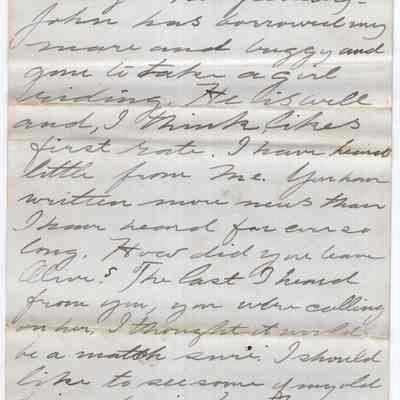 John has borrowed my
mare and buggy and
gone to take a girl
riding. He is well
and, I think, likes
first rate. I have heard
little from Me. You have
written more news than
I have heard for ever so
long. How did you leave
Olive? The last I heard
from you, you were calling
on her. I thought it would
be a match sure. I should
like to see some of my old